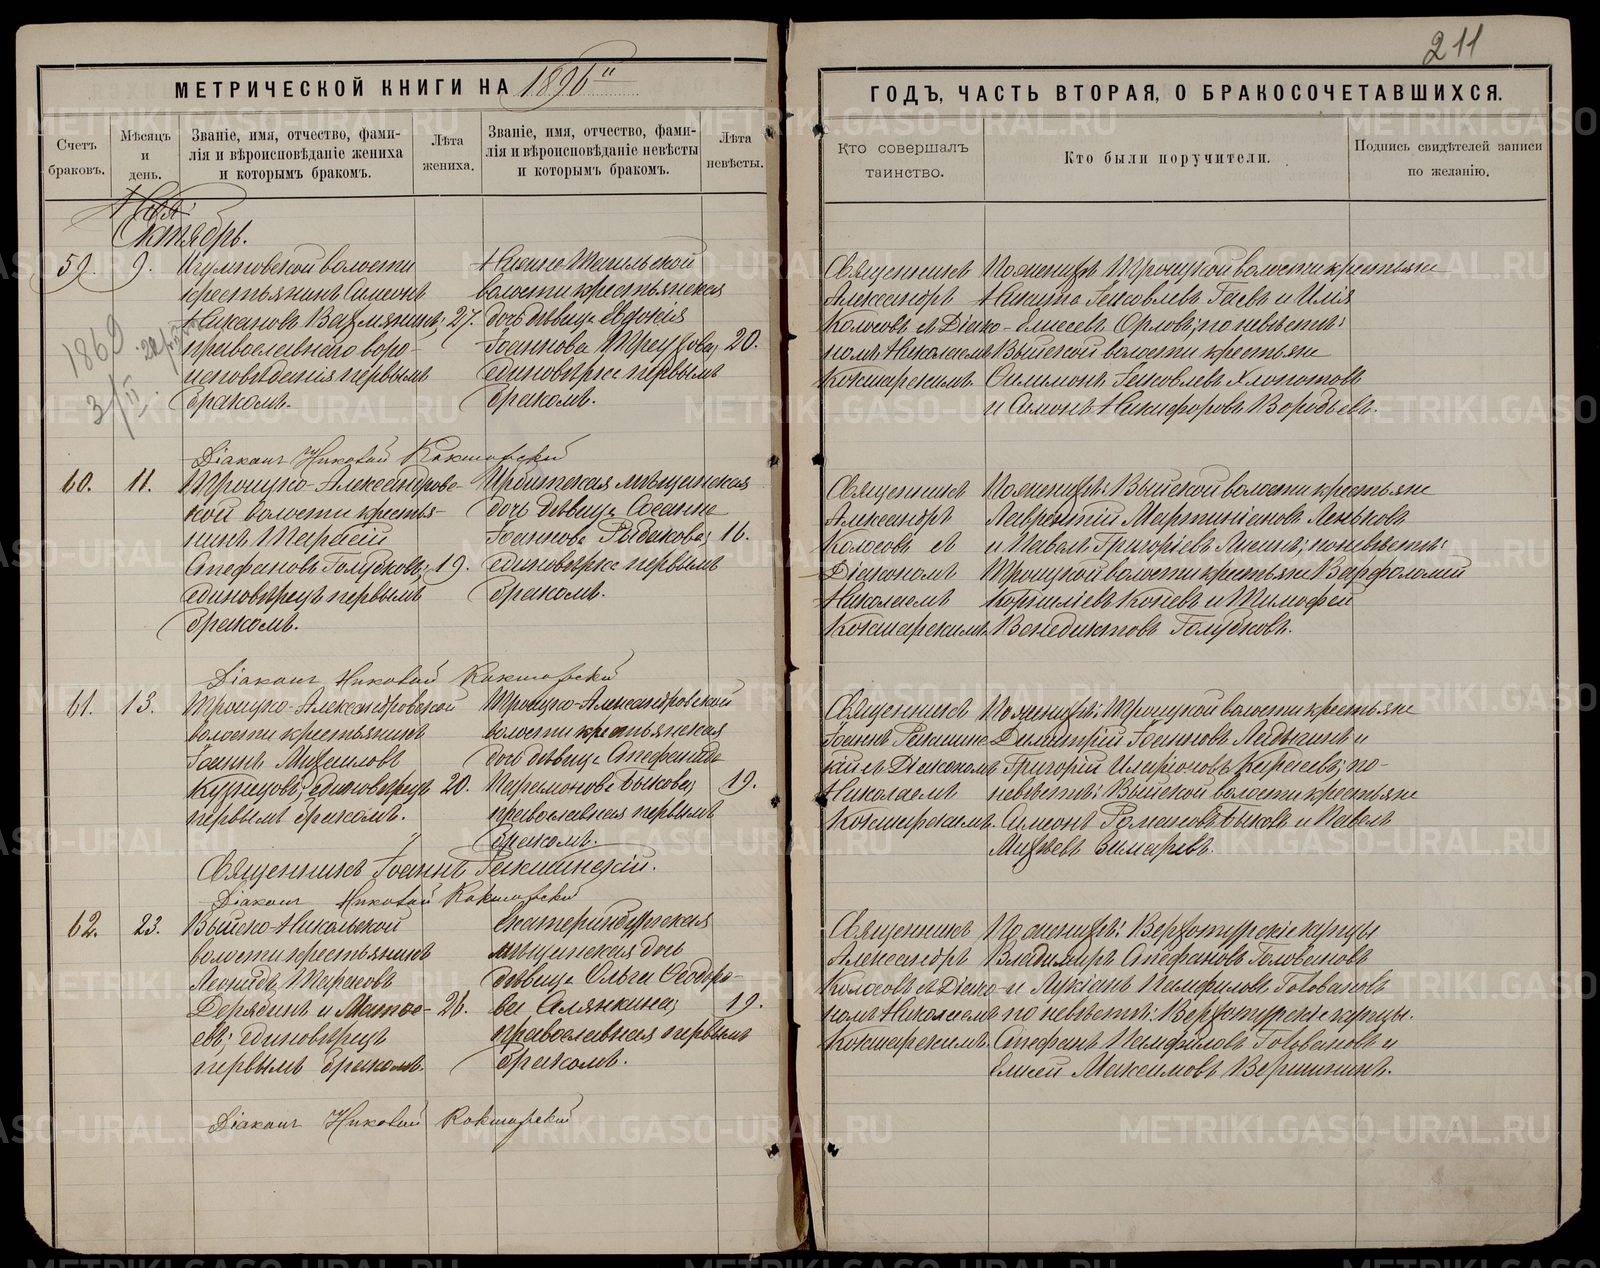 211
МЕТРИЧЕСКОЙ КНИГИ НА 1896
ГОДЪ, ЧАСТЬ ВТОРАЯ, О БРАКОСОЧЕТАВШИХСЯ.
Счетъ браковъ.
Мѣсяцъ и день.
Званіе, имя, отчество, фами-
лія и вѣроисповѣданіе жениха
и которымъ бракомъ.
Лѣта жениха.
Званіе, имя, отчество, фами-
лія и вѣроисповѣданіе невѣсты
и которымъ бракомъ.
Лѣта невѣсты.
Кто совершалъ таинство.
Кто были поручители.
Подпись свидѣтелей записи по желанію.
Октябрь.
59. 9.
волости
крестьянинъ Симеонъ
27.
православнаго вѣро-
исповѣданія первымъ
бракомъ.
1869
волости крестьянская
дочь дѣвица Евдокія
Іоаннова 20.
единовѣрка первымъ
бракомъ.
Священникъ
Александръ
Колосовъ съ Діако-
номъ Николаемъ
Кокшарскимъ
По женихѣ: Троицкой волости крестьяне
Никита Іаковлевъ и Илія
Елисеевъ Орловъ; по невѣстѣ:
Выйской волости крестьяне
Іаковлевъ Хлопотовъ
и Симонъ Никифоровъ Воробьевъ.
Діаконъ Николай Кокшарскій
60. 11.
Троицко-Александровс-
кой волости крестья-
нинъ
Стефановъ Голубковъ; 19.
единовѣрецъ первымъ
бракомъ.
Ирбитская мѣщанская
дочь дѣвица Сосанна
Іоаннова Рыбакова; 16.
единовѣрка первымъ
бракомъ.
Священникъ
Александръ
Колосовъ съ
Діакономъ
Николаемъ
Кокшарскимъ
По женихѣ: Выйской волости крестьяне
Лаврентій Мартиніановъ Леньковъ
и Павелъ Григоріевъ по невѣстѣ:
Троицкой волости крестьяне Варфоломей
Корниліевъ Коневъ и Тимофей
Венедиктовъ Голубковъ.
Діаконъ Николай Кокшарскій
61. 13.
Троицко-Александровской
волости крестьянинъ
Іоаннъ Михаиловъ
Кузнецовъ; единовѣрецъ 20.
первымъ бракомъ.
Троицко-Александровской
волости крестьянская
дочь дѣвица Стефанида
Парамонова Быкова; 19.
православная первымъ
бракомъ.
Священникъ
Іоаннъ
съ Діакономъ
Николаемъ
Кокшарскимъ.
По женихѣ: Троицкой волости крестьяне
Димитрій Іоанновъ Ладыгинъ и
Григорій Иларіоновъ по-
невѣстѣ: Выйской волости крестьяне
Симеонъ Романовъ Быковъ и Павелъ
Священникъ Іоаннъ
Діаконъ Николай Кокшарскій
62. 23.
Выйско-Никольской
волости крестьянинъ
Леонидъ Тарасовъ
Дерябинъ и 26.
единовѣрецъ
первымъ бракомъ.
Екатеринбургская
мѣщанская дочь
дѣвица Ольга Ѳеодоро-
ва Алянкина; 19.
православная первымъ
бракомъ.
Священникъ
Александръ
Колосовъ съ Діако-
номъ Николаемъ
Кокшарскимъ
По женихѣ: Верхотурскіе купцы
Владимиръ Стефановъ Головановъ
и Лукіанъ Памфиловъ Головановъ
по невѣстѣ: Верхотурскіе купцы.
Стефанъ Памфиловъ Головановъ и
Елисей Максимовъ Вершининъ.
Діаконъ Николай Кокшарскій
METRIKI.GASO-URAL.RU